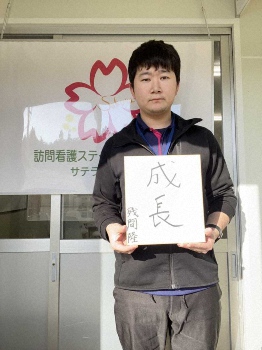 訪問看護ステ
サテラ
成長
残間 隆